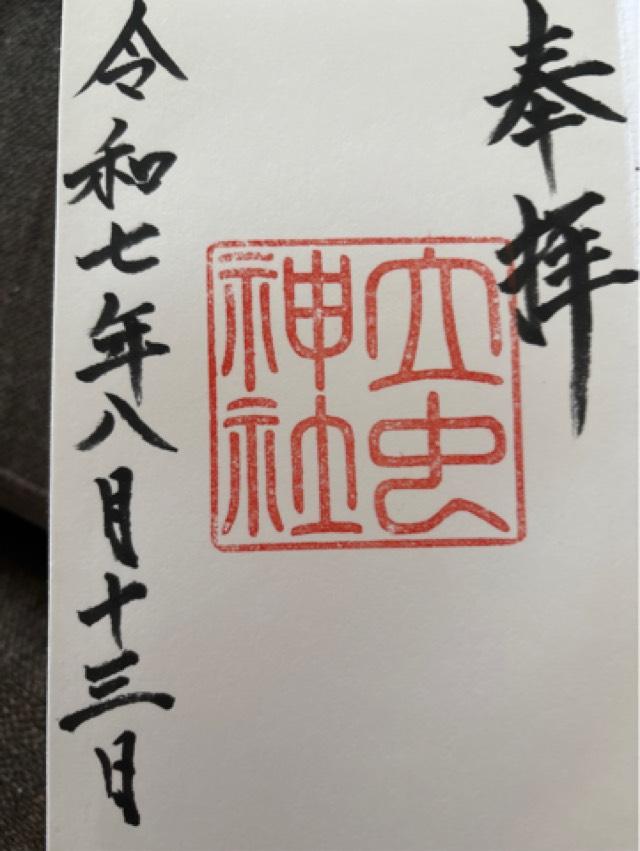 奉拝
立虫
神社
令和七年八月十三日